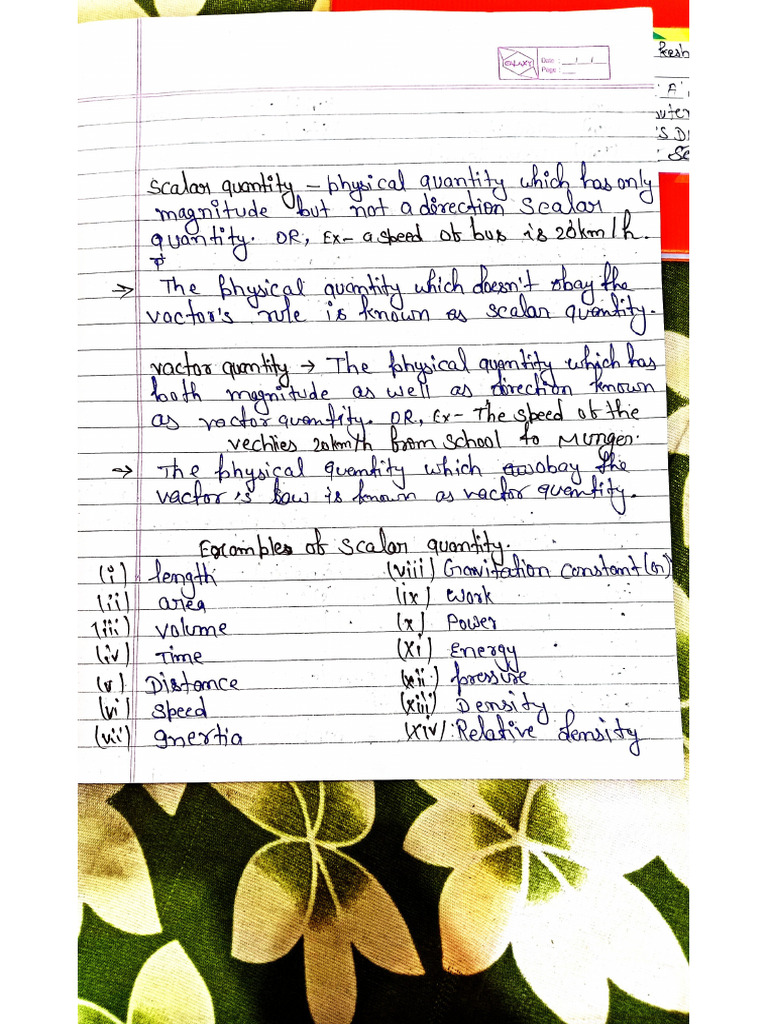 GALAXY
Date :
Page :
Resh
'A'
uter
'S D
Se
Scalar quantity – physical quantity which has only
magnitude but not a direction scalar
quantity. OR, Ex- a speed of bus is 20km/h.
→ The physical quantity which doesn't obay the
vactor's rule is known as scalar quantity.
vactor quantity → The physical quantity which has
both magnitude as well as direction known
as vactor quantity. OR, Ex- The speed of the
vechiies 20km/h from school to Munger.
→ The physical quantity which obay the
vactor's law is known as vactor quantity.
Examples of scalar quantity.
(i) length
(ii) area
(iii) volume
(iv) Time
(v) Distance
(vi) speed
(vii) Inertia
(viii) Gravitation constant (G)
(ix) Work
(x) Power
(xi) Energy
(xii) pressure
(xiii) Density
(xiv) Relative density